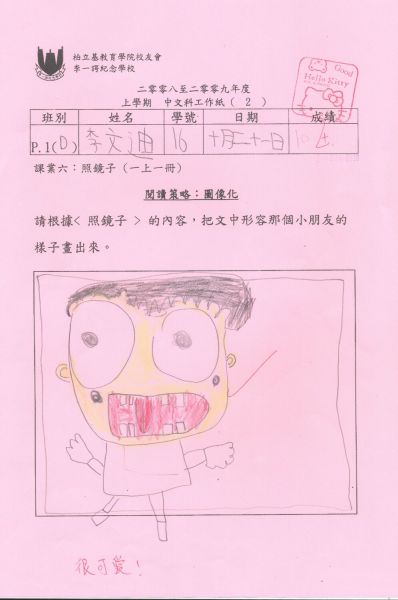 柏立基教育學院校友會
李一諤紀念學校
Good
Hello Kitty
二零零八至二零零九年度
上學期 中文科工作紙( 2 )
班別 姓名 學號 日期 成績
P.1(D) 李文迪 16 十月二十一日
課業六：照鏡子(一上一冊)
閱讀策略：圖像化
請根據< 照鏡子 > 的內容，把文中形容那個小朋友的
樣子畫出來。
很可愛！